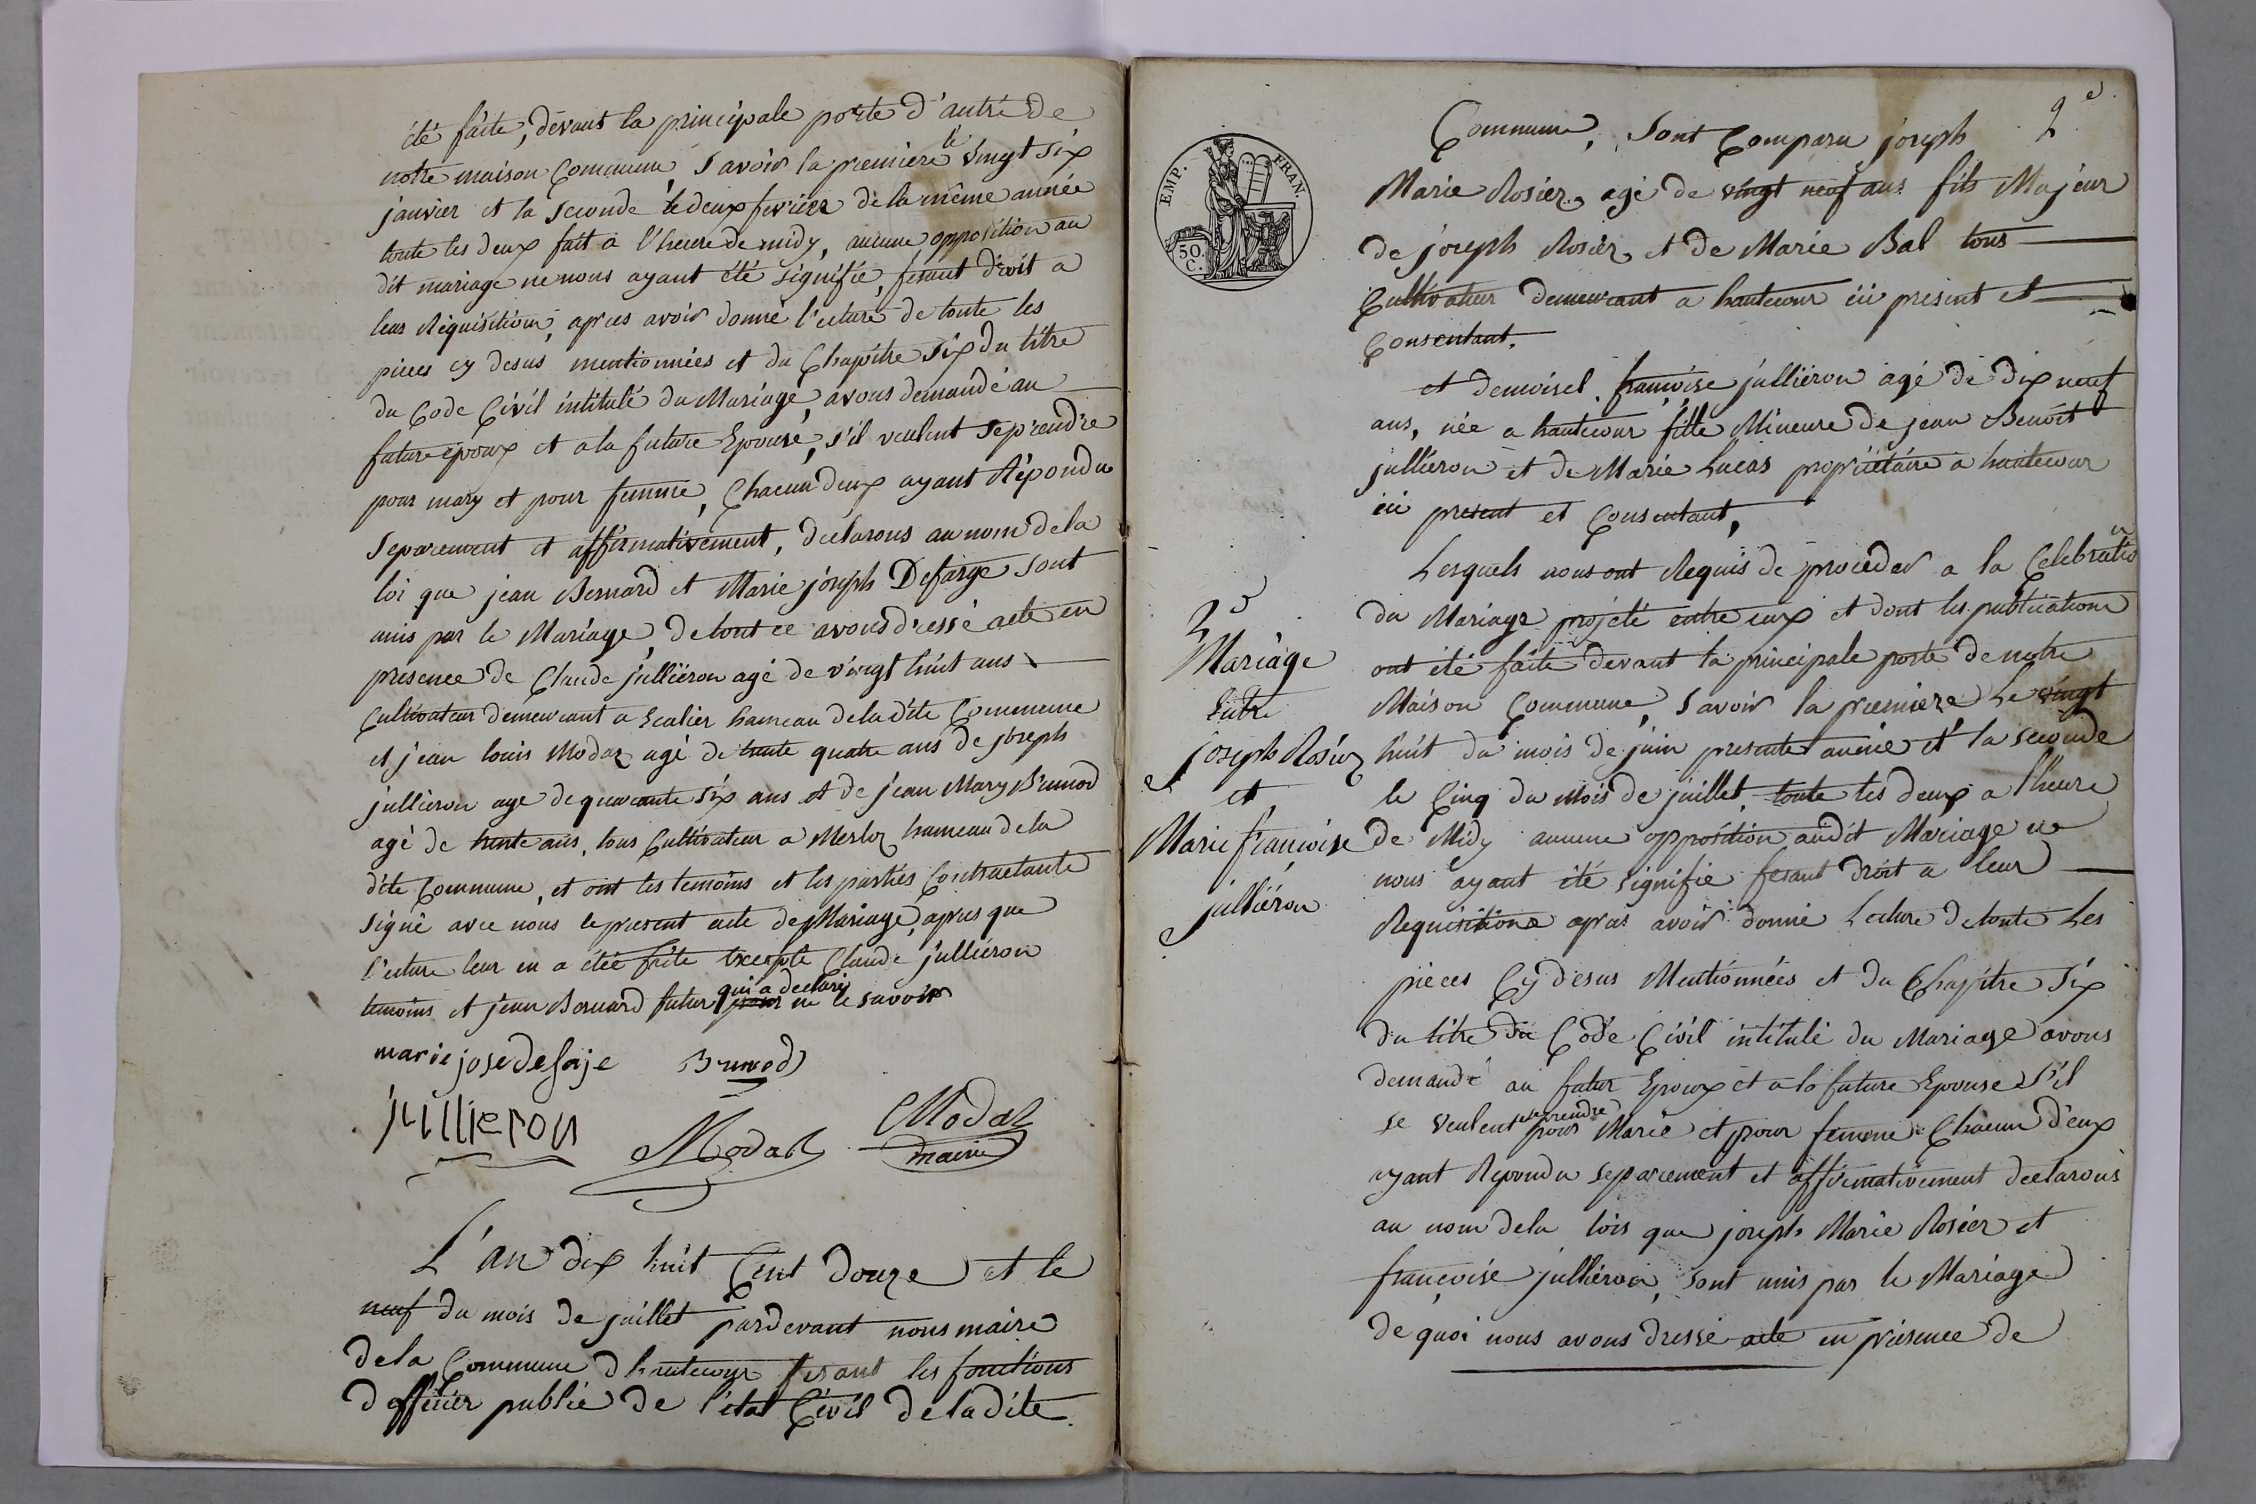 été faite, devant la principale porte d'autré de
notre maison Commune, Savoir la premiere le vingt Six
janvier et la Seconde le deux fevrier de la même année
toute les deux fait a l'heure de midy, aucune opposition au
dit mariage ne nous ayant été signifié, fesant droit a
leur Réquisition, apres avoir donné l'ecture de toute les
pieces cy desus mentionnées et du Chapitre Six du titre
du Code Civil intitulé du Mariage, avons demandé au
future époux et a la future Epouse, s'il veulent Seprendre
pour mary et pour femme, Chacun deux ayant Répondu
Separement et affirmativement, declarons au nom de la
loi que jean Bernard et Marie joseph Defarge sont
unis par le Mariage, de tout ce avons dressé acte en
presence de Claude jullieron agé de vingt huit ans
Cultivateur demeurant a Ecalier hameau dela dite Commune
et jean louis Modaz agé de trente quatre ans de joseph
jullieron age de quarante six ans et de jean Mary Brunod
agé de trente ans, tous Cultivateur a Merloz hameau de la
dite Commune, et ont les temoins et les parties Contractante
Signé avec nous le present acte de Mariage, apres que
l'ecture leur en a étée faite excepté Claude jullieron
temoins et jean Bernard futur qui a declaré ne le savoir
marie jose defaje Brunod
jullieron Modaz Modaz
maire
L'an dix huit Cent douze et le
neuf du mois de juillet pardevant nous maire
dela Commune dhautecour fesant les fonctions
d officier public de l'état Civil de la dite
2e
Commune, Sont Comparu joseph
Marie Rosier agé de vingt neuf ans fils Majeur
de joseph Rosier et de Marie Bal tous
Cultivateur demeurant a hautecour ici present et
Consentant.
et demoisel françoise jullieron agé de dix neuf
ans, née a hautecour fille Mineure de jean Benoit
jullieron et de Marie Lucas propriétaire a hautecour
ici present et Consentant,
Lesquels nous ont Requis de proceder a la Celebration
du Mariage projeté entre eux et dont les publications
ont été faite devant la principale porte de notre
Maison Commune, Savoir la premiere Le vingt
huit du mois de juin presente année et la seconde
le Cinq du Mois de juillet, toute les deux a l'heure
de Midy aucune opposition audit Mariage ne
nous ayant été signifié fesant droit a leur
Requisitions apres avoir donné Lecture de toute Les
pieces Cy desus Mentionnées et du Chapitre Six
du titre du Code Civil intitulé du Mariage avons
demandé au futur Epoux et a la future Epouse s'il
se veulent prendre pour Marie et pour femme Chacun d'eux
ayant Repondu Separement et affirmativement declarons
au nom dela lois que joseph Marie Rosier et
françoise jullieron, sont unis par le Mariage
de quoi nous avons dressé acte en présence de
Mariage
Entre
joseph Rosier
et
Marie françoise
jullieron
EMP. FRAN.
50.
C.